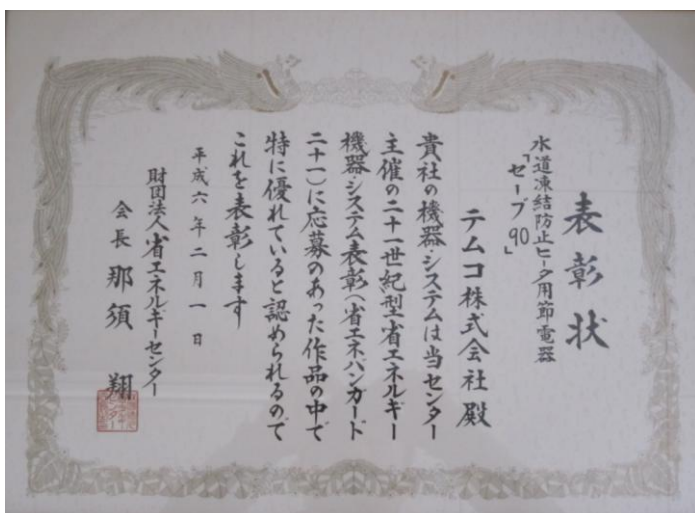 表彰状
水道凍結防止ヒータ用節電器
「セーブ90」
テムコ株式会社殿
貴社の機器・システムは当センター
主催の二十一世紀型省エネルギー
機器・システム表彰(省エネバンガード
二十一)に応募のあった作品の中で
特に優れていると認められるので
これを表彰します
平成六年二月一日
財団法人省エネルギーセンター
会長 那須 翔